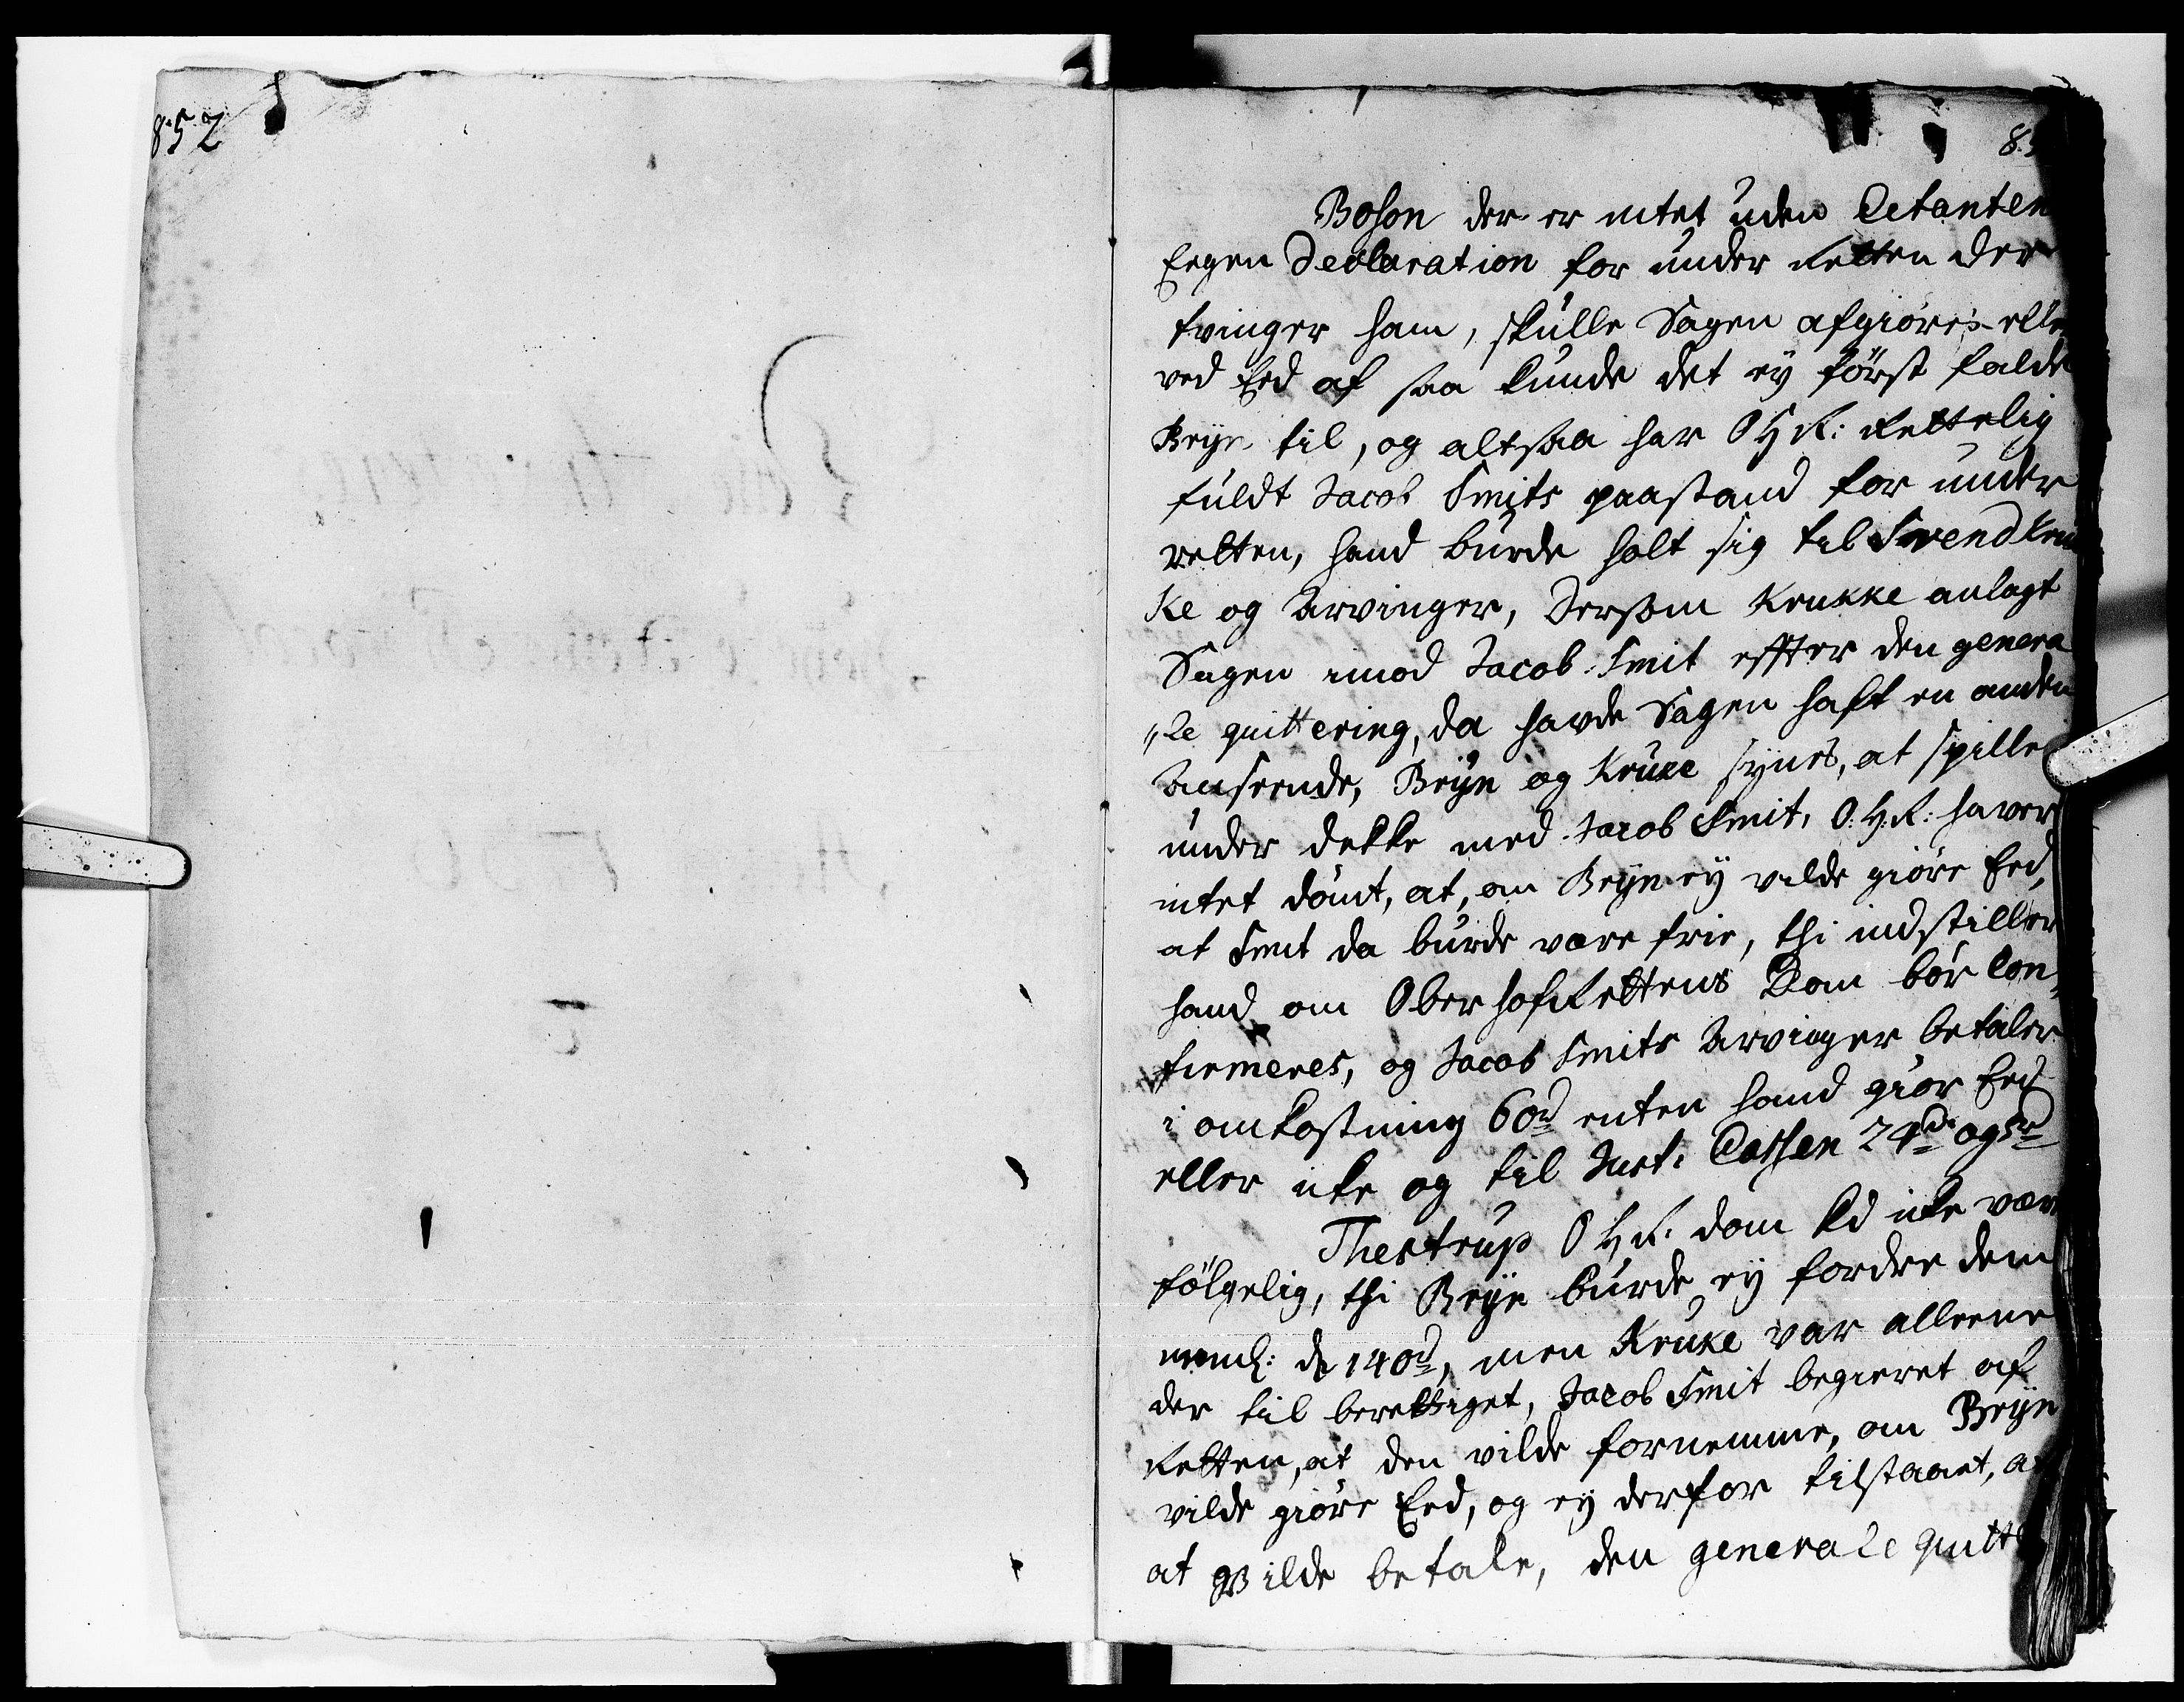 852
8.5
Boson der er intet uden Citanten
Eegen Declaration for under Retten der
tvinger ham, skulle Sagen afgiöres elle
ved Eed af saa kunde det ey först falde
Bryn til, og altsaa har O H R: Rettelig
fuldt Jacob Smits paastand for under
retten, hand burde holt sig til Svend Kru
ke og Arvinger, Dersom Krukke anlagt
Sagen imod Jacob Smit effter den genera
„le quittering, da havde Sagen haft en anden
Anseende, Bryn og Kruke synes, at spille
under dekke med Jacob Smit, O. H. R: haver
intet dömt, at, om Bryn ey vilde giöre Eed,
at Smit da burde være frie, thi indstiller
hand om Oberhofrettens Dom bör Con„
firmeres, og Jacob Smits Arvinger betaler
i omkostning 60rd enten hand giör Eed
eller icke og til Just: Cassen 24rd og
Thestrup O H R: dom kd icke være
fölgelig, thi Bryn burde ey fordre dem
neml: de 140rd, men Kruke var alleene
der til berettiget, Jacob Smit begieret af
Retten, at den vilde fornemme, om Bryn
vilde giöre Eed, og ey derfor tilstaaet, at
at vilde betale, den generale quitt